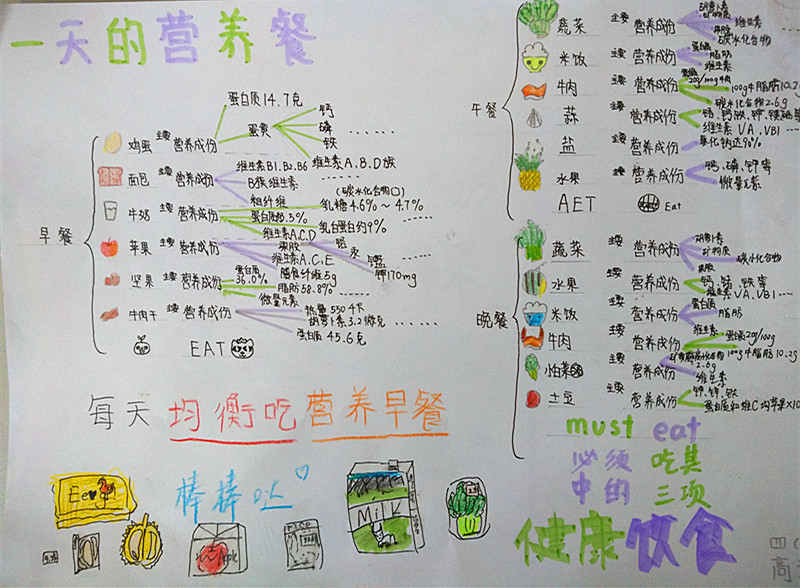 一天的营养餐
早餐
鸡蛋 主要 营养成份
蛋白质14.7克
蛋黄
钙
磷
铁
面包 主要 营养成份
维生素B1、B2、B6
维生素A、B、D
B族维生素
牛奶 主要 营养成份
粗纤维
(碳水化合物)
乳糖4.6%~4.7%
乳蛋白约9%
维生素A、C、D
苹果 主要 营养成份
果胶
维生素A、C、E
钾170mg
坚果 主要 营养成份
蛋白质
36.0%
膳食纤维5g
脂肪58.8%
微量元素
牛肉干 主要 营养成份
热量550千卡
胡萝卜素3.2微克
蛋白质45.6克
EAT
每天均衡吃营养早餐
棒棒哒
Milk
午餐
蔬菜 主要 营养成份
胡萝卜素
矿物质
维生素
碳水化合物
米饭 主要 营养成份
蛋白质
脂肪
维生素
牛肉 主要 营养成份
蛋白20g/100g牛肉
100g牛脂肪10.2g
蒜 主要 营养成份
碳水化合物2.6g
维生素VA、VB1
盐 主要 营养成份
氯化钠达90%
水果 主要 营养成份
钙、磷、钾等
微量元素
AET
Eat
晚餐
蔬菜 主要 营养成份
胡萝素
矿物质
碳水化合物
水果 主要 营养成份
果胶
钙、锌、铁等
维生素VA、VB1
米饭 主要 营养成份
蛋白质
脂肪
牛肉 主要 营养成份
维生素
蛋白20g/100g
100g牛脂肪10.2g
小白菜 主要 营养成份
2.6g
维生素
土豆 主要 营养成份
must eat
必须吃其
中的三项
健康饮食
四
高